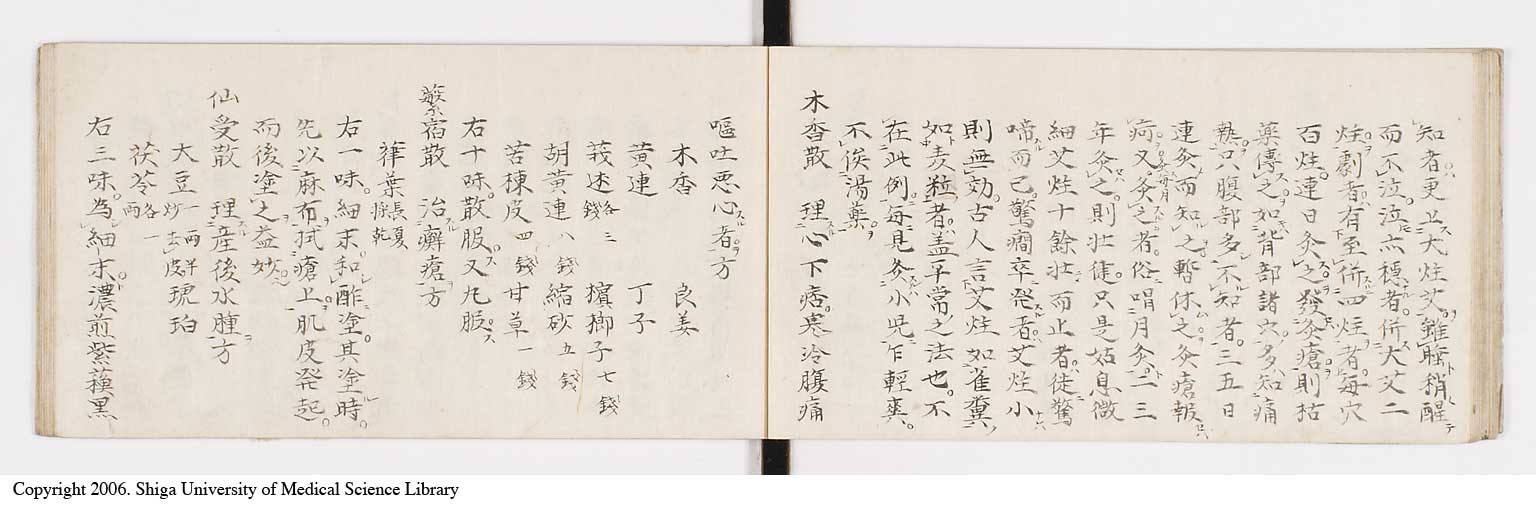 知者更上大炷艾雖睡稍醒
而不泣泣亦穏者併大艾二
炷劇者有至併四炷者毎穴
百炷連日灸之發灸瘡則枯
藥傳之如背部諸穴多知痛
熱只腹部多不知者三五日
連灸而知之暫休之灸瘡報
痂又灸之者俗謂月灸二三
年灸之則壮健只是姑息微
細艾炷十餘壮而止者徒驚
啼而已驚癇卒発者艾炷小
則無効古人言艾炷如雀糞
如麦粒者盖平常之法也不
在此例毎見灸小児乍輕爽
不俟湯藥
木香散 理心下痞寒冷腹痛
嘔吐悪心者方
木香 良姜
黄連 丁子
莪迷各三錢 檳榔子七錢
胡黄連八錢 縮砂五錢
苦棟皮四錢 甘草一錢
右十味散服又丸服
蘩宿散 治癬瘡方
葎葉長夏採乾
右一味細末和酢塗其塗時
先以麻布拭瘡上肌皮発起
而後塗之益妙
仙受散 理産後水腫方
大豆一両半炒去皮 琥珀
茯苓各一両
右三味為細末濃煎紫蘓黒
Copyright 2006. Shiga University of Medical Science Library